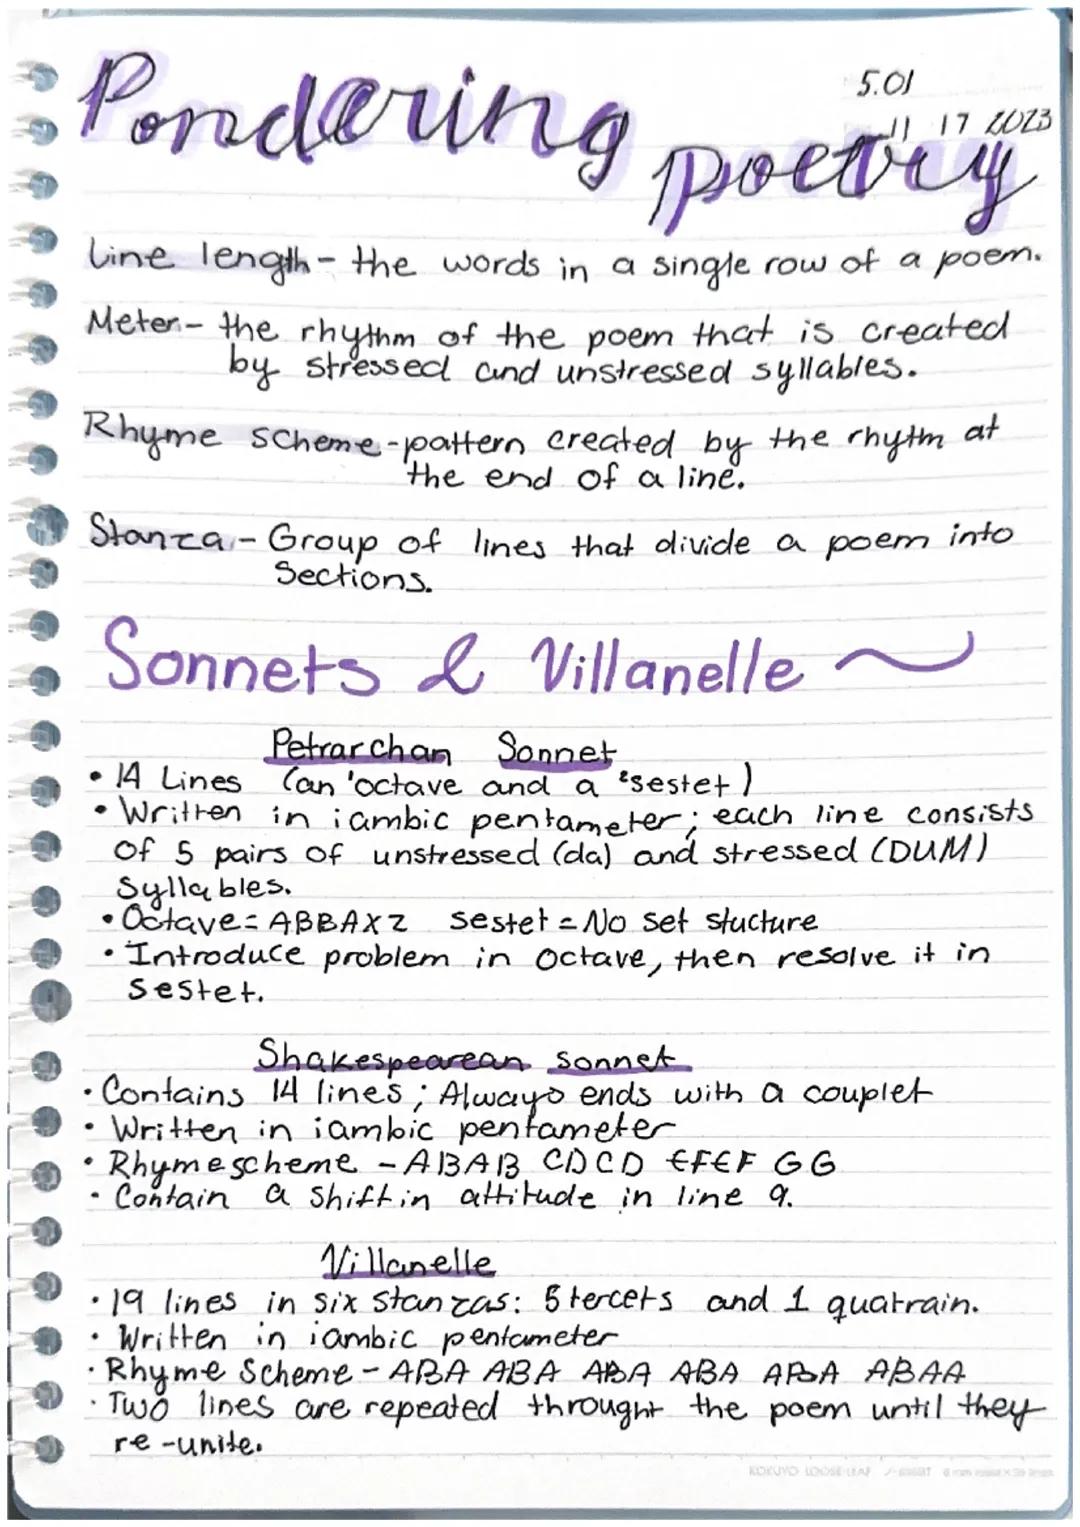 Pondering
5.01
11 17 2023
poetry
Line length - the words in a single row of a poem.
Meter - the rhythm of the poem that is created
by stressed and unstressed syllables.
Rhyme scheme - pattern created by the rhythm at
the end of a line.
Stanza - Group of lines that divide a poem into
Sections.
Sonnets & Villanelle
Petrarchan Sonnet
• 14 Lines (an 'octave and a ²sestet)
• Written in iambic pentameter; each line consists
of 5 pairs of unstressed (da) and stressed (DUM)
Syllables.
• Octave = ABBAX2 sestet = No set stucture
• Introduce problem in octave, then resolve it in
sestet.
Shakespearean sonnet
• Contains 14 lines; Always ends with a couplet
• Written in iambic pentameter
• Rhyme scheme - ABAB CDCD EFEF GG
• Contain a shift in attitude in line 9.
Villanelle
• 19 lines in six stanzas: 5 tercets and 1 quatrain.
• Written in iambic pentameter
• Rhyme Scheme - ABA ABA ABA ABA ABA ABAA
• Two lines are repeated throught the poem until they
re-unite.
KOKUYO LOOSE-LEAF